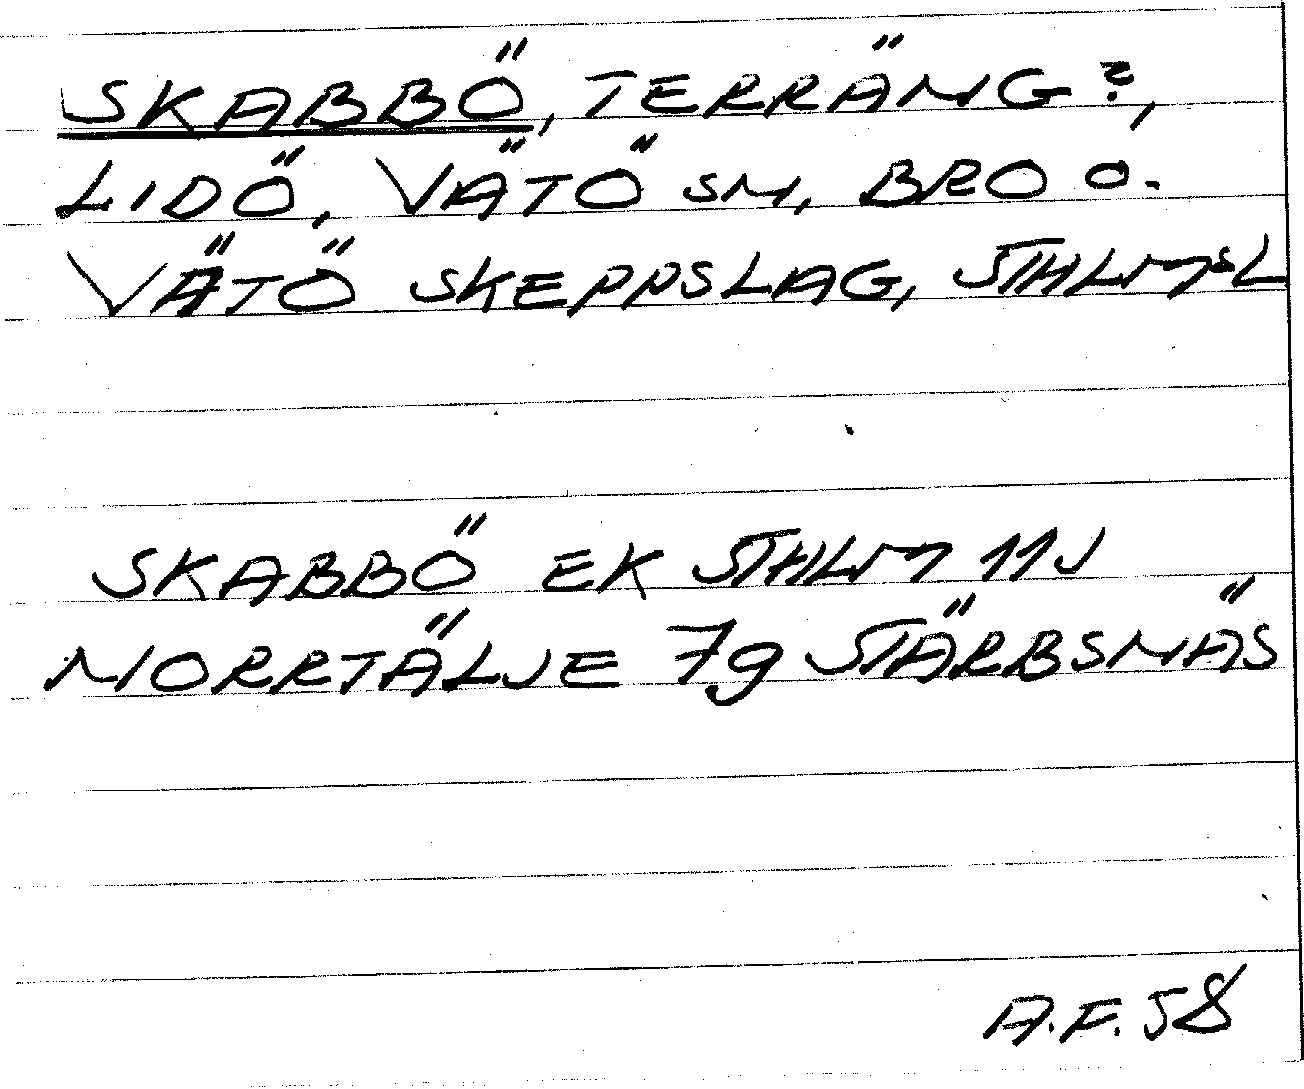 SKABBÖ, TERRÄNG?,
LIDÖ, VÄTÖ SN, BRO O.
VÄTÖ SKEPPSLAG, STHLMSL
SKABBÖ EK STHLM 11J
NORRTÄLJE 7g STÄRBSNÄS
A.F. 58